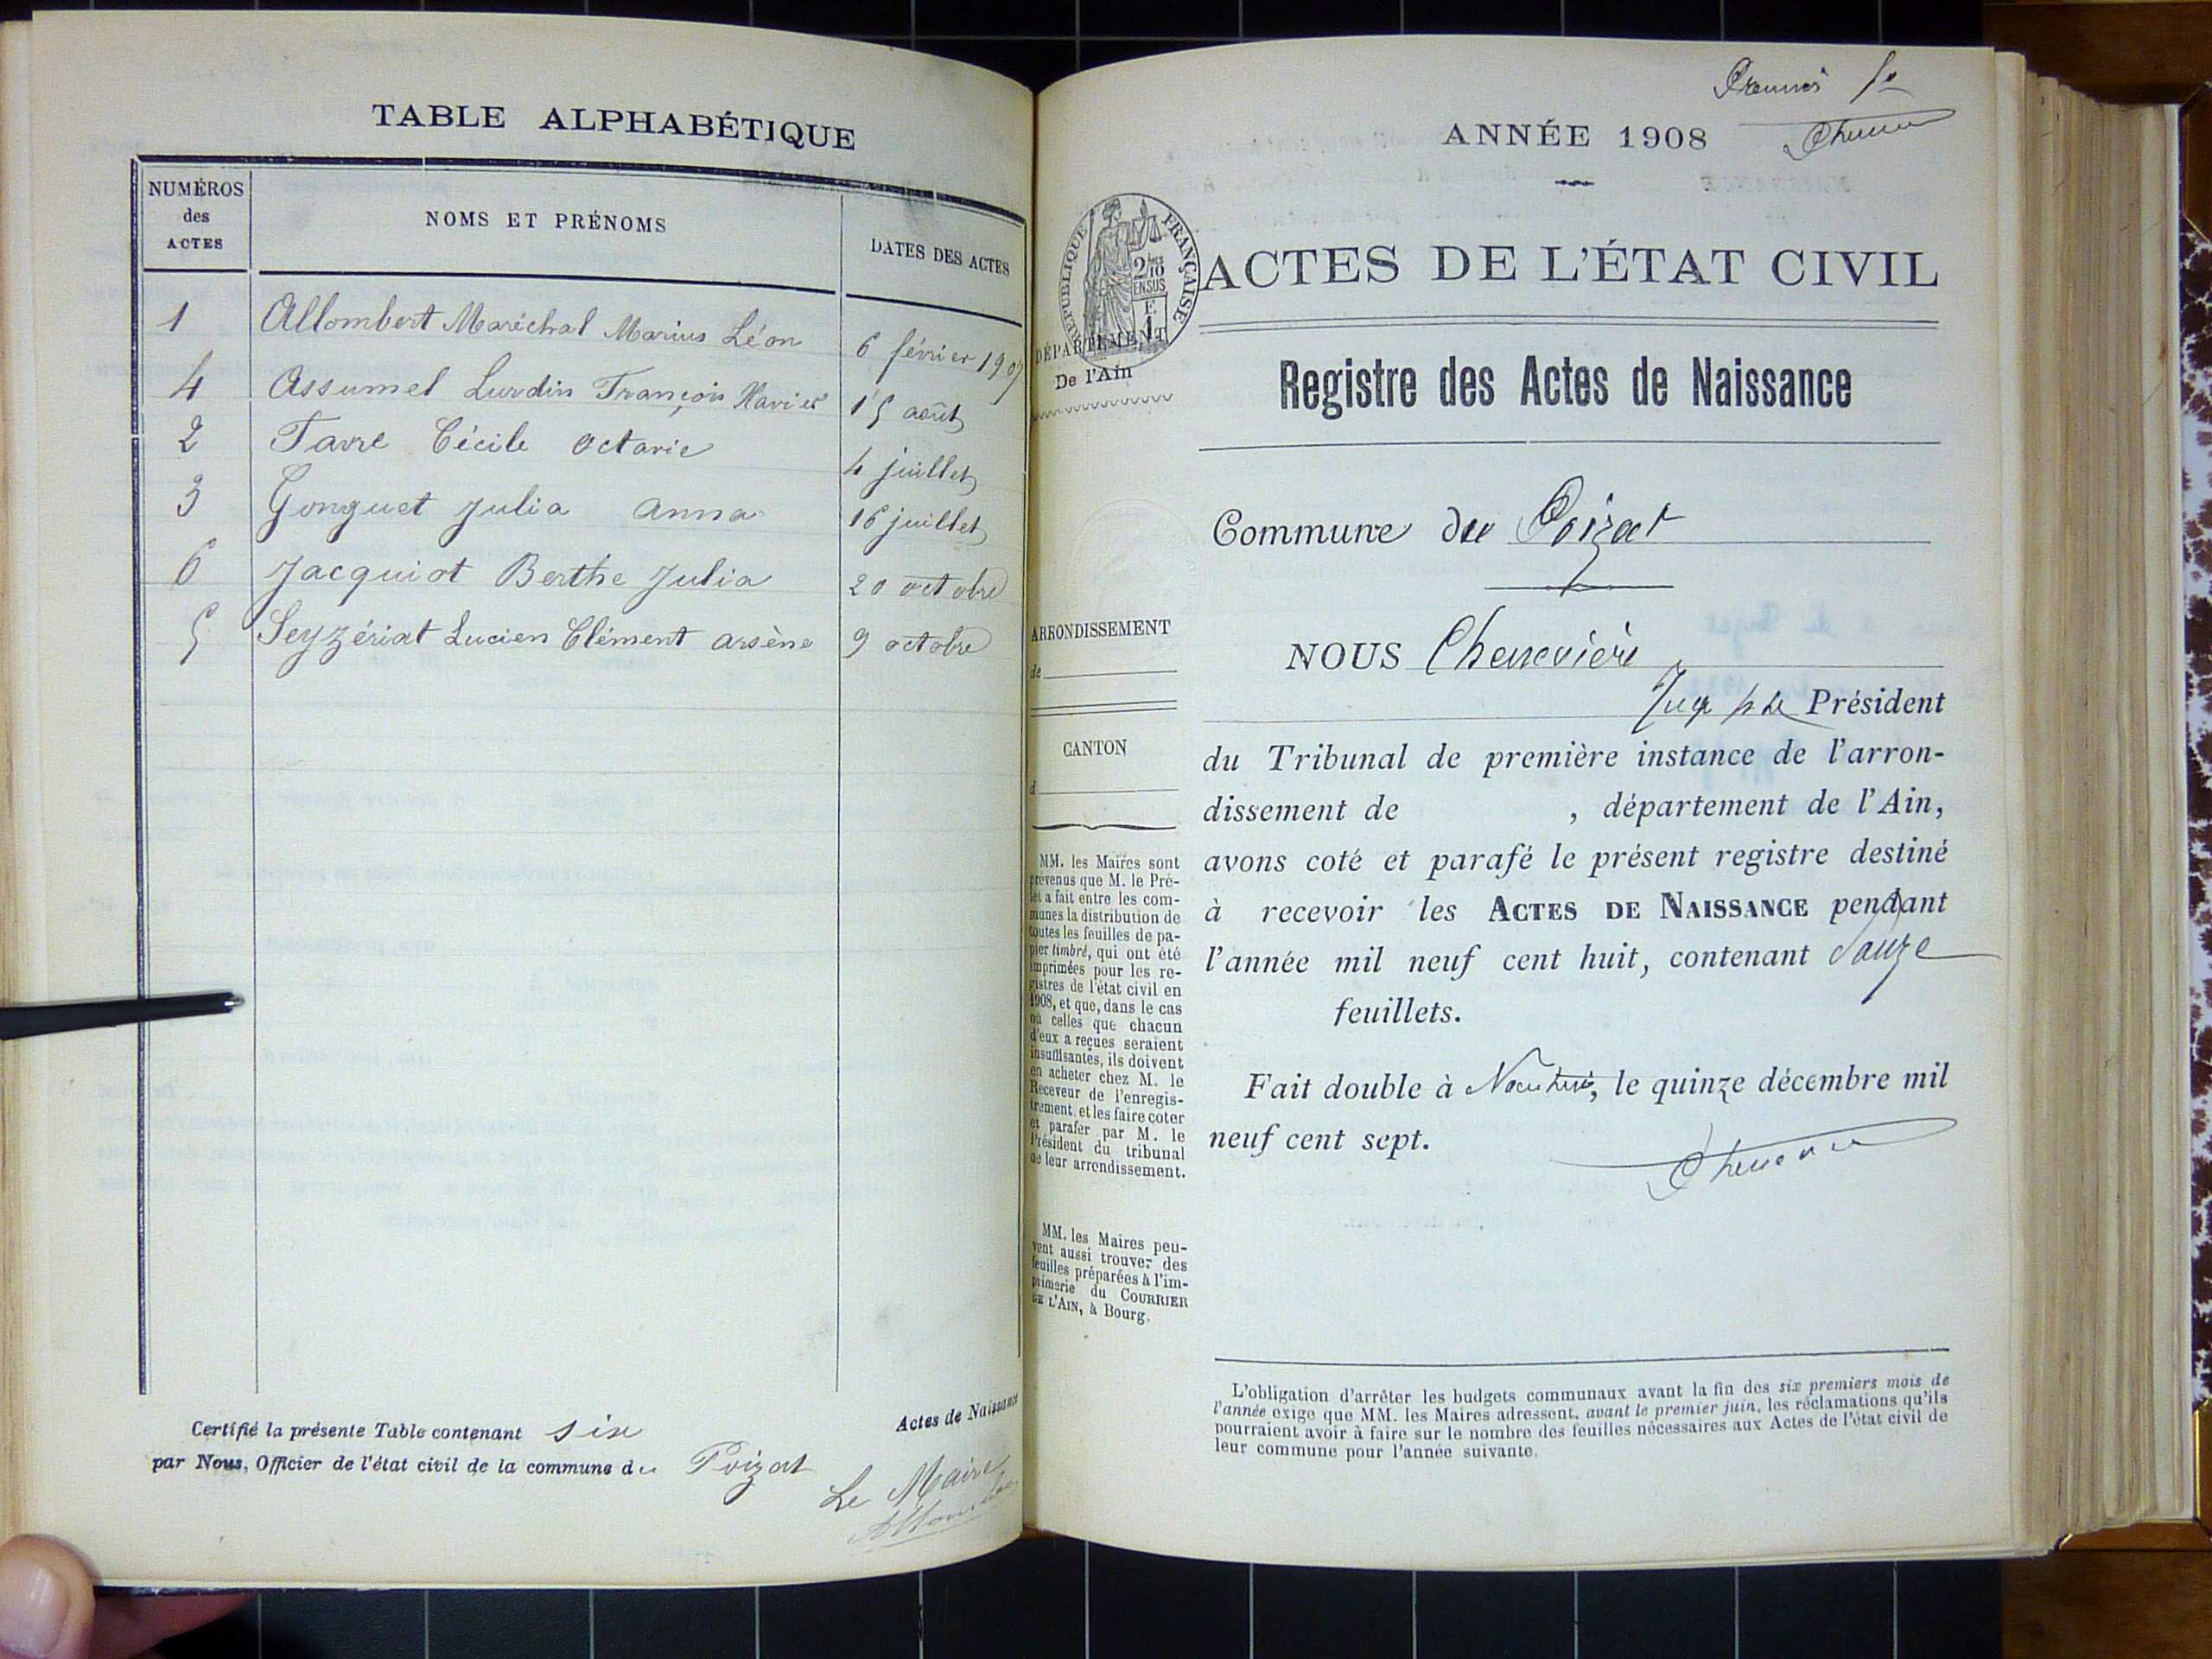 TABLE ALPHABÉTIQUE
NUMÉROS
des
ACTES
NOMS ET PRÉNOMS
DATES DES ACTES
1 Allombert Maréchal Marius Léon 6 février 1907
4 Assumel Lurdin François Xavier 15 août
2 Favre Cécile Octavie 4 juillet
3 Gonguet Julia Anna 16 juillet
6 Jacquiot Berthe Julia 20 octobre
5 Seyzériat Lucien Clément arsène 9 octobre
Certifié la présente Table contenant six Actes de Naissance
par Nous, Officier de l'état civil de la commune du Poizat
Le Maire
Premier
ANNÉE 1908
RÉPUBLIQUE FRANÇAISE
2/10
EN SUS
F
1
ACTES DE L'ÉTAT CIVIL
DÉPARTEMENT
De l'Ain
Registre des Actes de Naissance
Commune du Poizat
ARRONDISSEMENT
de
CANTON
d
NOUS Chenevière
Juge Président
du Tribunal de première instance de l'arron-
dissement de , département de l'Ain,
avons coté et parafé le présent registre destiné
à recevoir les ACTES DE NAISSANCE pendant
l'année mil neuf cent huit, contenant douze
feuillets.
Fait double à Nantua, le quinze décembre mil
neuf cent sept.
MM. les Maires sont
prévenus que M. le Pré-
fet a fait entre les com-
munes la distribution de
toutes les feuilles de pa-
pier timbré, qui ont été
imprimées pour les re-
gistres de l'état civil en
1908, et que, dans le cas
où celles que chacun
d'eux a reçues seraient
insuffisantes, ils doivent
en acheter chez M. le
Receveur de l'enregis-
trement, et les faire coter
et parafer par M. le
Président du tribunal
de leur arrondissement.
MM. les Maires peu-
vent aussi trouver des
feuilles préparées à l'im-
primerie du COURRIER
DE L'AIN, à Bourg.
L'obligation d'arrêter les budgets communaux avant la fin des six premiers mois de
l'année exige que MM. les Maires adressent, avant le premier juin, les réclamations qu'ils
pourraient avoir à faire sur le nombre des feuilles nécessaires aux Actes de l'état civil de
leur commune pour l'année suivante.